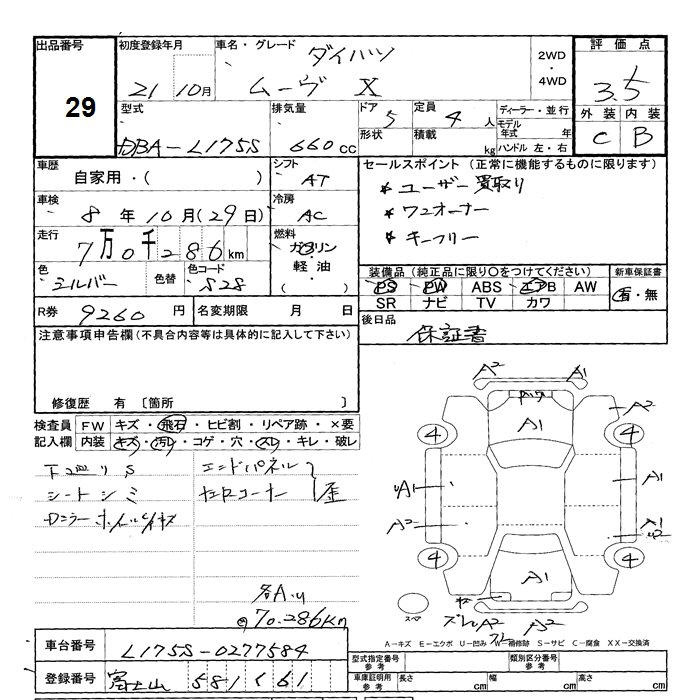 出品番号
29
初度登録年月
21 10月
車名・グレード
ダイハツ
ムーヴ X
2WD
・
4WD
評価点
3.5
外装 内装
C B
型式
DBA-L175S
排気量
660 cc
ドア 5
形状
定員 4 人
積載 kg
ディーラー・並行
モデル年式 年
ハンドル 左・右
車歴
自家用・( )
シフト
AT
車検
8年10月(29日)
冷房
AC
走行
7万0千286km
燃料
ガソリン
軽油
( )
色
シルバー
色替
色コード
S28
R券 9260 円
名変期限 月 日
セールスポイント (正常に機能するものに限ります)
* ユーザー買取り
* ワンオーナー
* キーフリー
装備品 (純正品に限り○をつけてください)
PS PW ABS エアB AW
SR ナビ TV カワ
新車保証書
有・無
後日品
保証書
注意事項申告欄(不具合内容等は具体的に記入して下さい)
修復歴 有 〔箇所 〕
検査員記入欄
FW キズ・飛石・ヒビ割・リペア跡・×要
内装 キズ・汚れ・コゲ・穴・スレ・キレ・破レ
シートシミ
エンドパネル
歪
各A.U
70.286Km
A2 A1
A1
A2
4 4
UA1
A1
A2
A1
U2
4 4
A1
A2
A2
スペア
A-キズ E-エクボ U-凹み W-補修跡 S-サビ C-腐食 XX-交換済
車台番号 L175S-0277584
登録番号 富士山 581 く 61
型式指定番号
参考
類別区分番号
参考
車庫証明用
参考
長さ cm
幅 cm
高さ cm